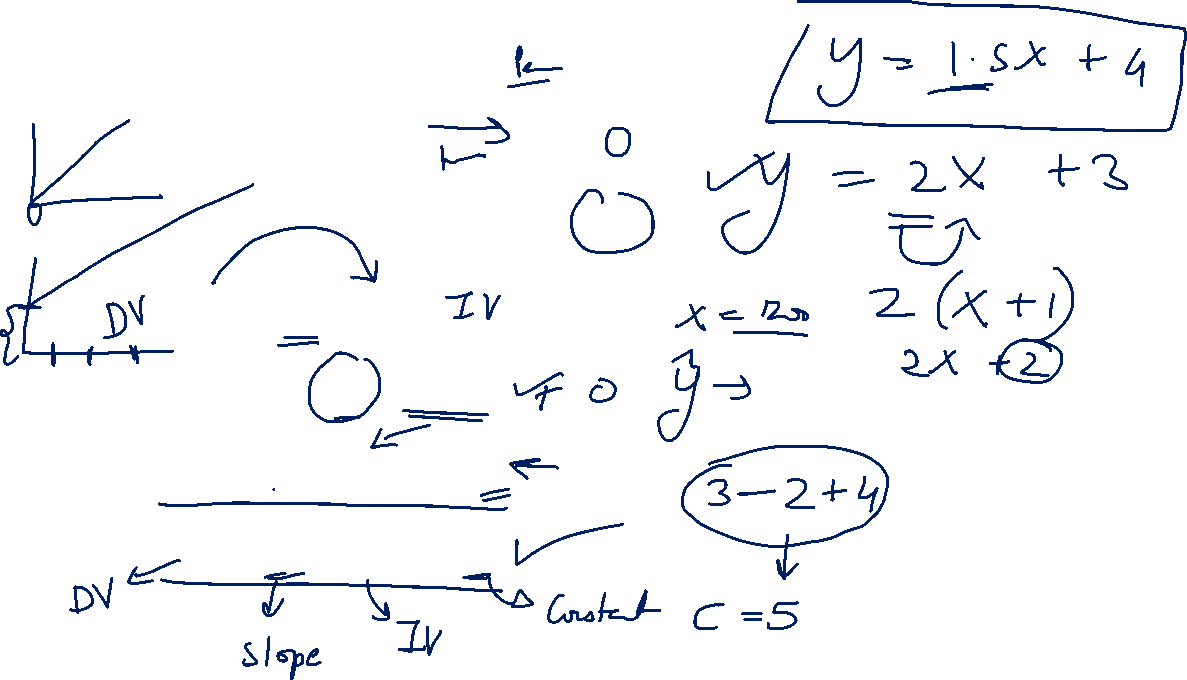 y = 1.5x + 4
y = 2x + 3
DV
IV
x =
2 (x + 1)
2x + 2
0 y →
3 - 2 + 4
DV
Slope
IV
Constant
C = 5